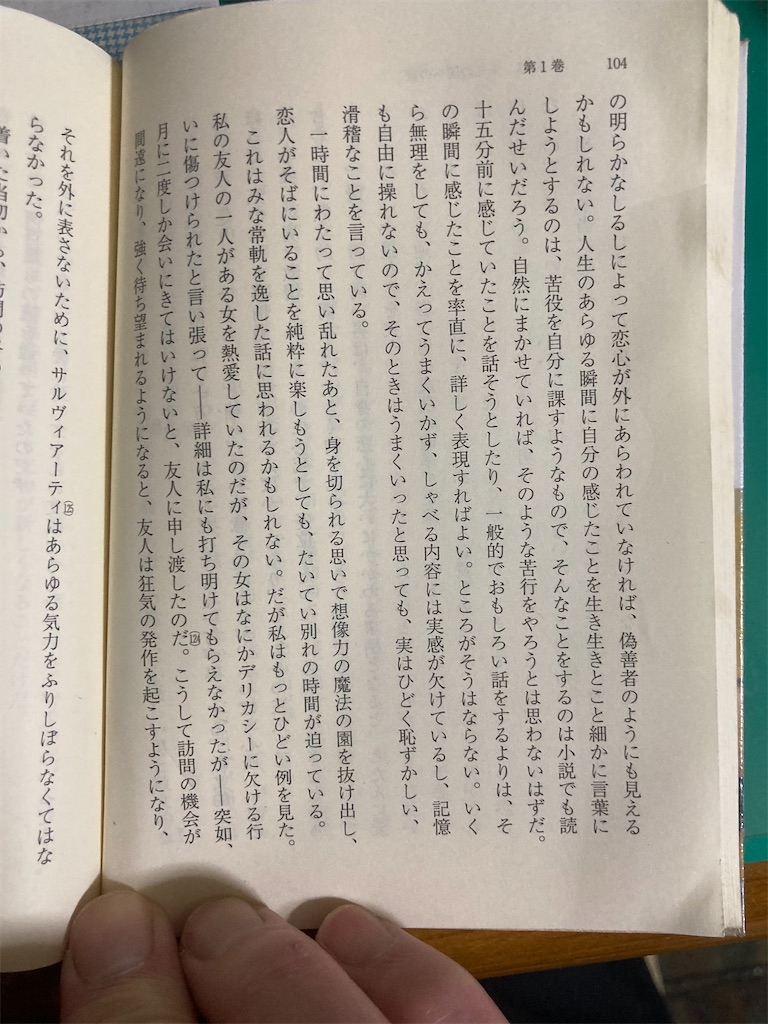 104
第1巻
の明らかなしるしによって恋心が外にあらわれていなければ、偽善者のようにも見える
かもしれない。人生のあらゆる瞬間に自分の感じたことを生き生きとこと細かに言葉に
しようとするのは、苦役を自分に課すようなもので、そんなことをするのは小説でも読
んだせいだろう。自然にまかせていれば、そのような苦行をやろうとは思わないはずだ。
十五分前に感じていたことを話そうとしたり、一般的でおもしろい話をするよりは、そ
の瞬間に感じたことを率直に、詳しく表現すればよい。ところがそうはならない。いく
ら無理をしても、かえってうまくいかず、しゃべる内容には実感が欠けているし、記憶
も自由に操れないので、そのときはうまくいったと思っても、実はひどく恥ずかしい、
滑稽なことを言っている。
一時間にわたって思い乱れたあと、身を切られる思いで想像力の魔法の園を抜け出し、
恋人がそばにいることを純粋に楽しもうとしても、たいてい別れの時間が迫っている。
これはみな常軌を逸した話に思われるかもしれない。だが私はもっとひどい例を見た。
私の友人の一人がある女を熱愛していたのだが、その女はなにかデリカシーに欠ける行
いに傷つけられたと言い張って――詳細は私にも打ち明けてもらえなかったが――突如、
月に二度しか会いにきてはいけないと、友人に申し渡したのだ。こうして訪問の機会が
間遠になり、強く待ち望まれるようになると、友人は狂気の発作を起こすようになり、
それを外に表さないために、サルヴィアーティはあらゆる気力をふりしぼらなくてはな
らなかった。